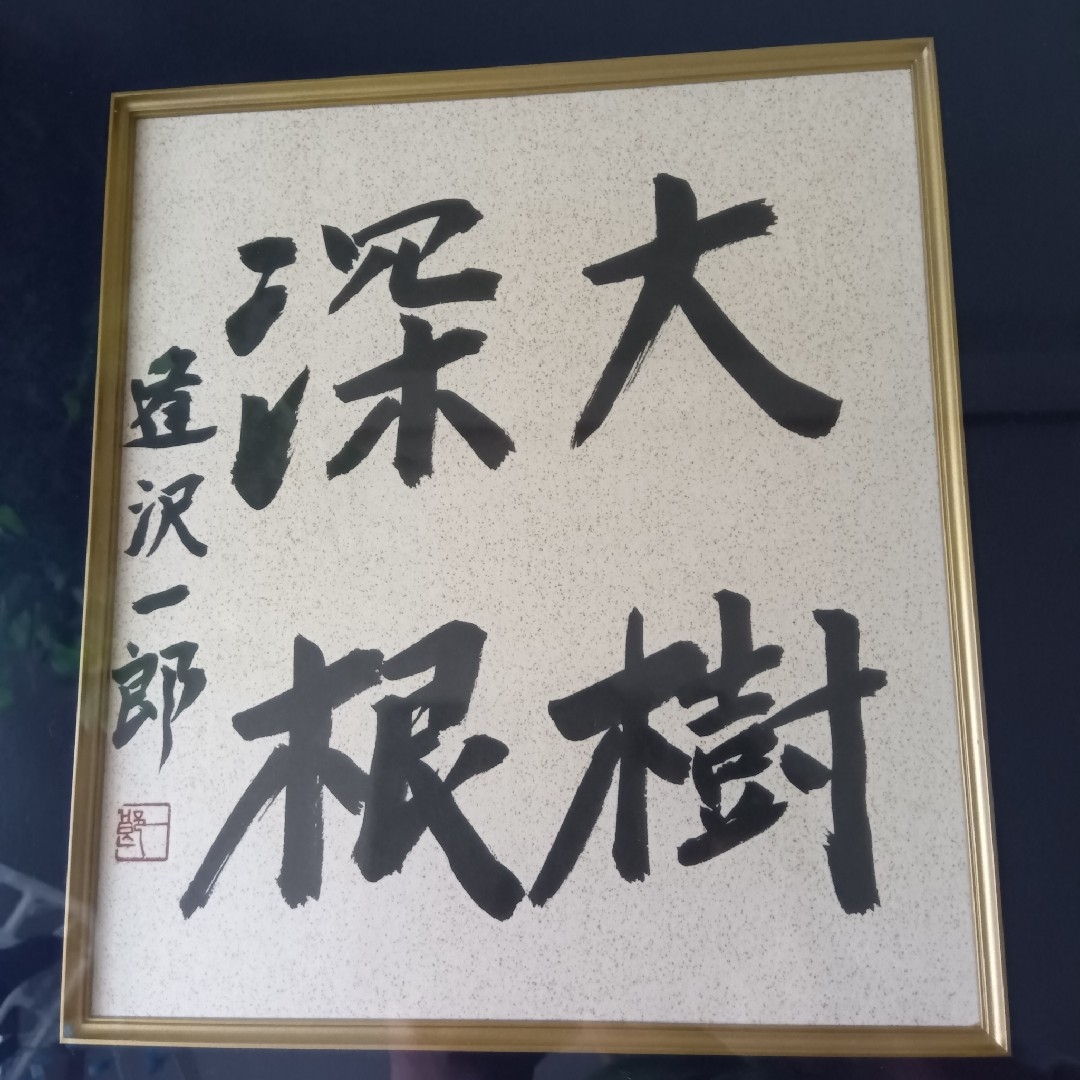 大樹
深根
逢沢一郎